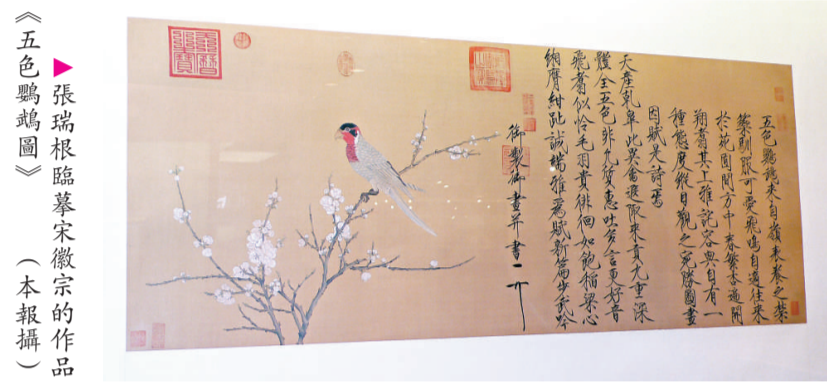 ▶張瑞根臨摹宋徽宗的作品
《五色鸚鵡圖》 (本報攝)
五色鸚鵡來自嶺表養之禁
籞馴服可愛飛鳴自適往來
於苑囿間方中春繁杏遍開
翔翥其上雅詫容與自有一
種態度縱目觀之宛勝圖畫
因賦是詩焉
天產乾皐此異禽遐陬來貢九重深
體全五色非凡質惠吐多言更好音
飛翥似怜毛羽貴徘徊如飽稻粱心
緗膺紺趾誠端雅爲賦新篇步武吟
御製御畫并書